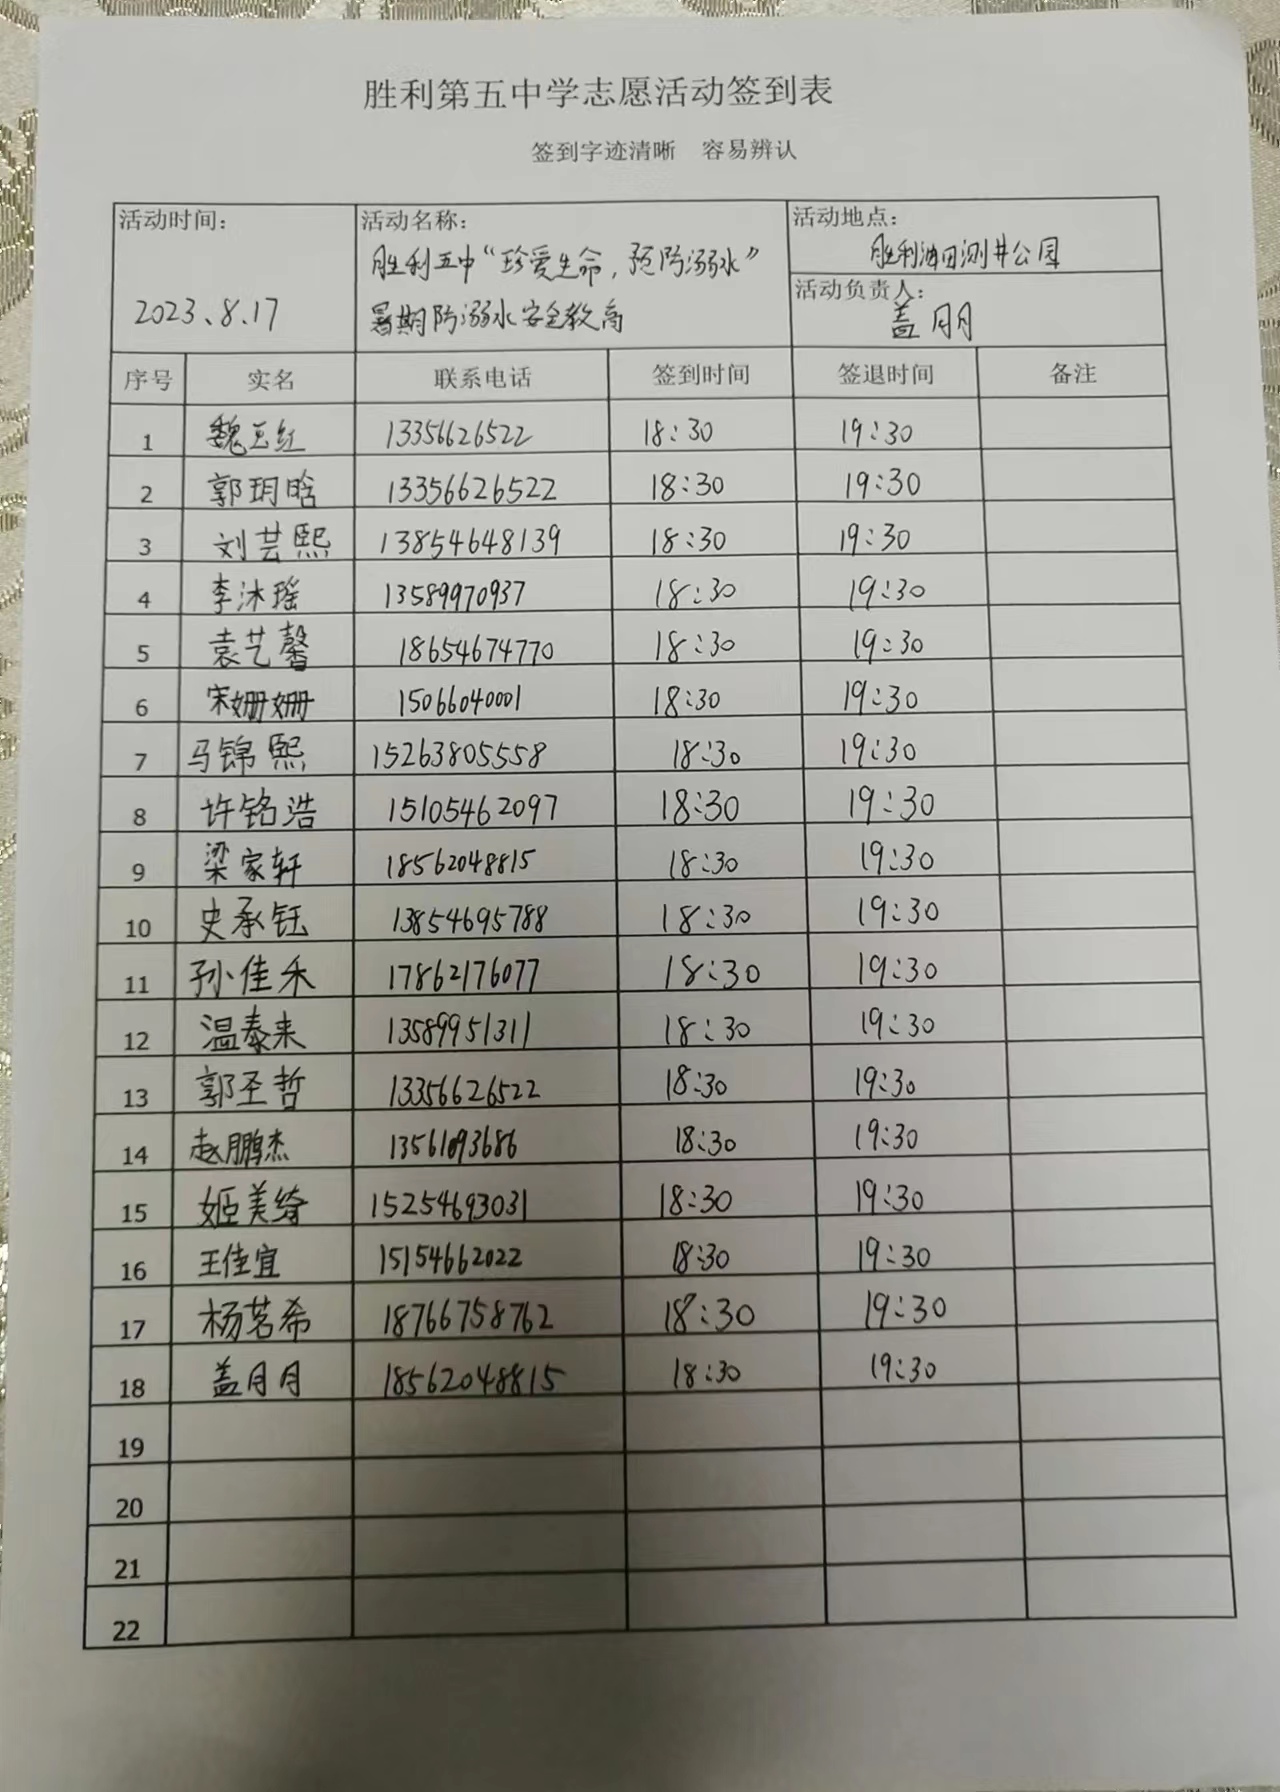 胜利第五中学志愿活动签到表
签到字迹清晰 容易辨认
活动时间: 活动名称: 活动地点:
胜利五中“珍爱生命,预防溺水” 胜利油田测井公园
活动负责人:
2023、8.17 暑期防溺水安全教育 盖月月
序号 实名 联系电话 签到时间 签退时间 备注
1 魏玉红 13356626522 18:30 19:30
2 郭玥晗 13356626522 18:30 19:30
3 刘芸熙 13854648139 18:30 19:30
4 李沐瑶 13589970937 18:30 19:30
5 袁艺馨 18654674770 18:30 19:30
6 宋姗姗 15066040001 18:30 19:30
7 马锦熙 15263805558 18:30 19:30
8 许铭浩 15105462097 18:30 19:30
9 梁家轩 18562048815 18:30 19:30
10 史承钰 13854695788 18:30 19:30
11 孙佳禾 17862176077 18:30 19:30
12 温泰来 13589951311 18:30 19:30
13 郭圣哲 13356626522 18:30 19:30
14 赵鹏杰 18:30 19:30
15 姬美绮 15254693031 18:30 19:30
16 王佳宜 15154662022 18:30 19:30
17 杨茗希 18766758762 18:30 19:30
18 盖月月 18562048815 18:30 19:30
19
20
21
22